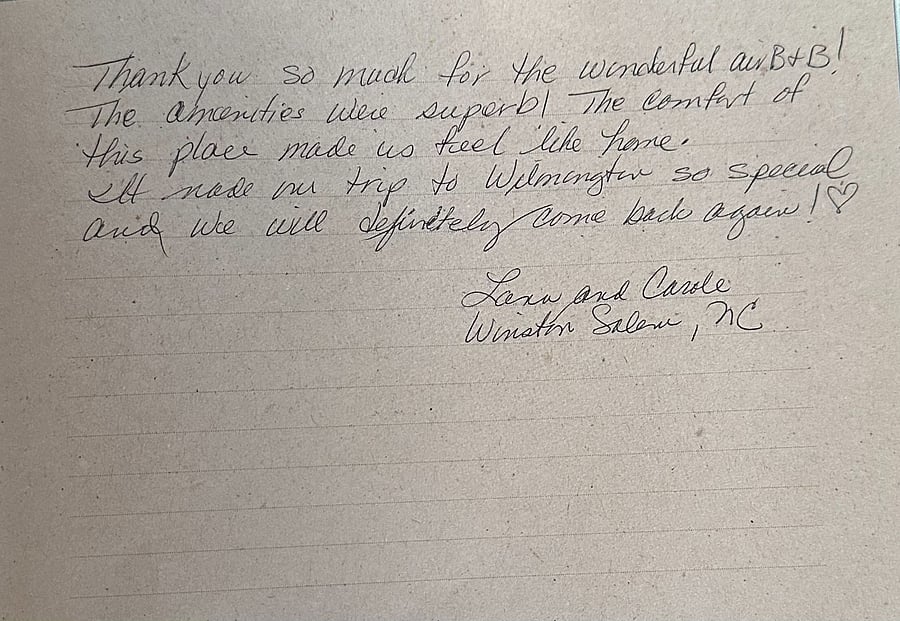 Thank you so much for the wonderful airB+B!
The amenities were superb! The comfort of
this place made us feel like home.
It made our trip to Wilmington so special
and we will definitely come back again! ♡
Lana and Carole
Winston Salem, NC